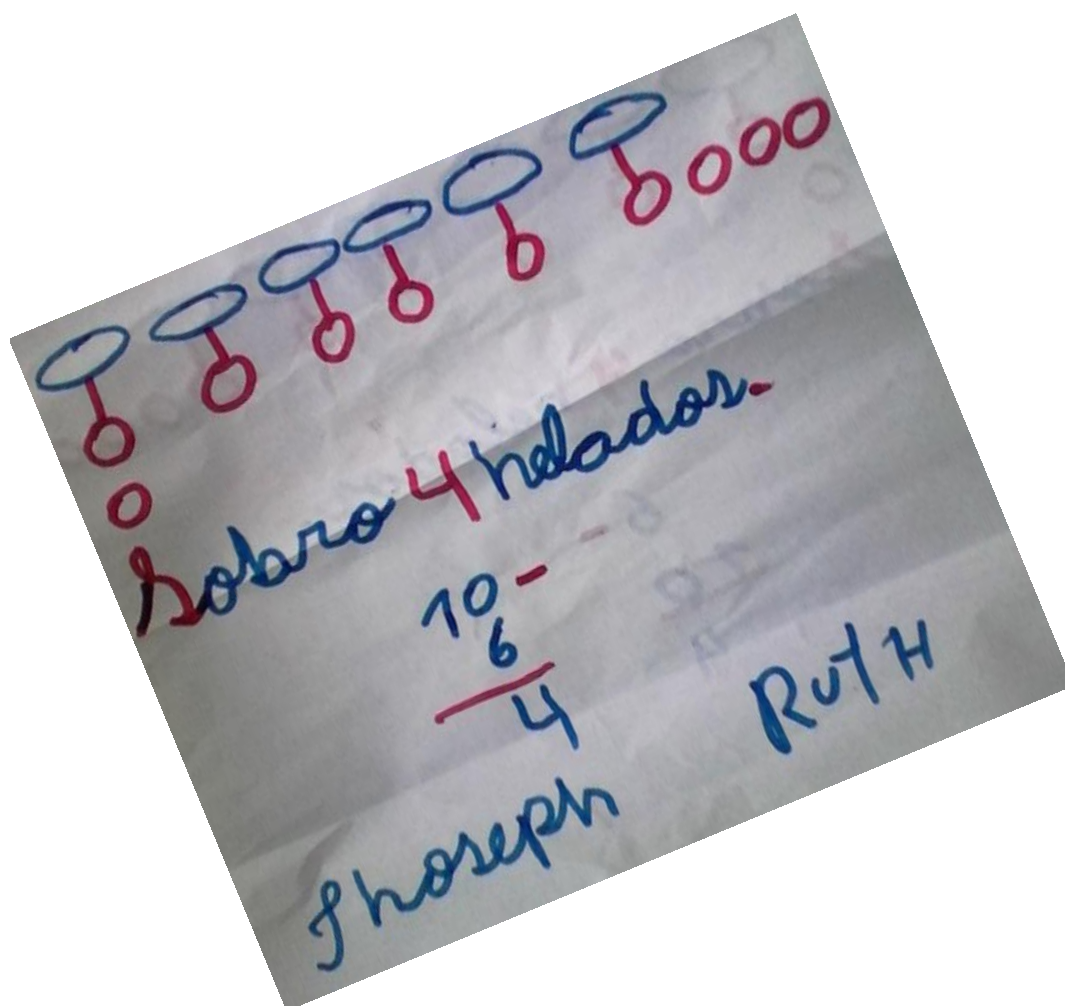 Sobro 4 helados.
10 -
6
4
Jhoseph RutH